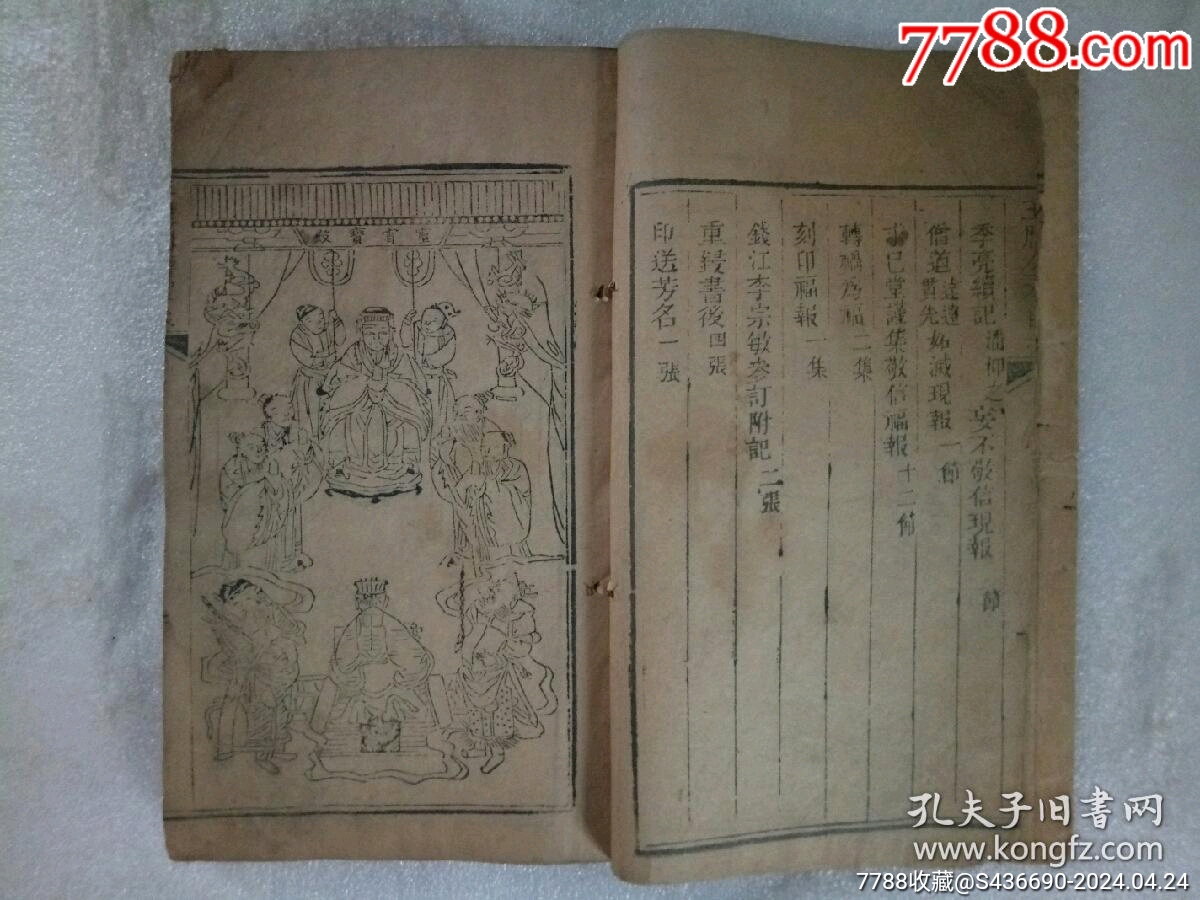 7788.com
季亮續記 之妄不敬信現報 節
僧道 貫先 始滅現報 一節
己堂謹集敬信福報十二節
轉禍為福二集
刻印福報一集
錢江李宗敏參訂附記二張
重鋟書後四張
印送芳名一張
靈霄寶殿
孔夫子旧书网
www.kongfz.com
7788收藏@S436690-2024.04.24